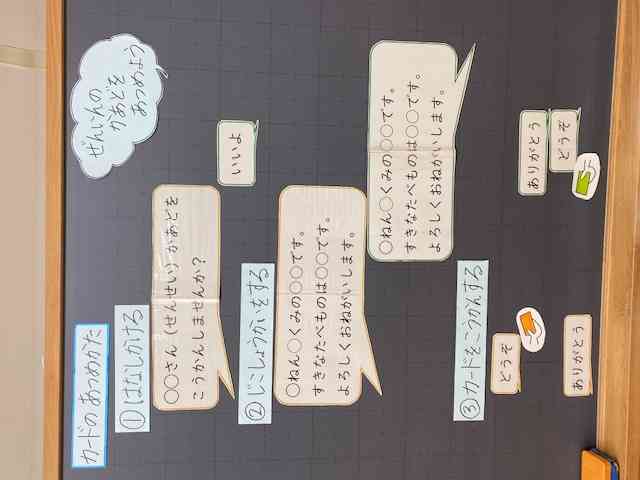 ぜんいんの
かあどを
あつめよう
カードのあつめかた
①はなしかける
○○さん(せんせい)かあどを
こうかんしませんか?
いいよ
②じこしょうかいをする
○ねん○くみの○○です。
すきなたべものは○○です。
よろしくおねがいします。
○ねん○くみの○○です。
すきなたべものは○○です。
よろしくおねがいします。
③カードをこうかんする
どうぞ
ありがとう
ありがとう
どうぞ